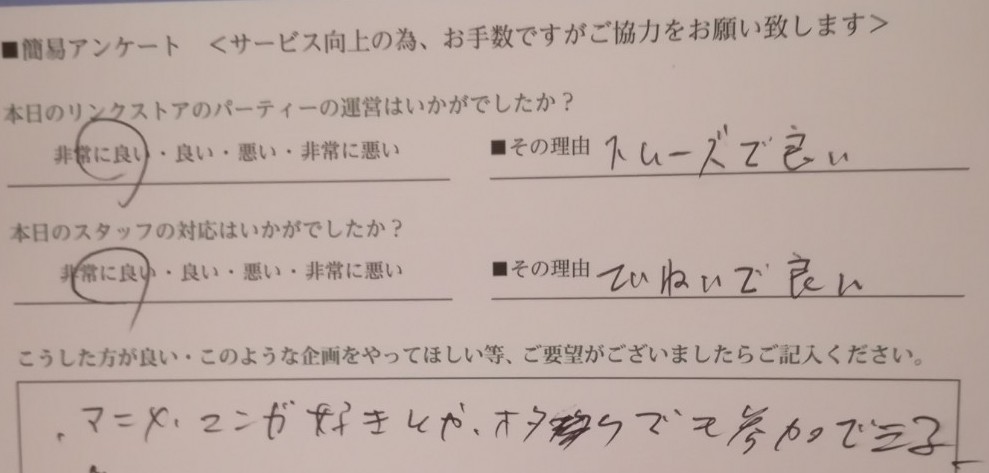 ■簡易アンケート <サービス向上の為、お手数ですがご協力をお願い致します>
本日のリンクストアのパーティーの運営はいかがでしたか？
非常に良い・良い・悪い・非常に悪い ■その理由 スムーズで良い
本日のスタッフの対応はいかがでしたか？
非常に良い・良い・悪い・非常に悪い ■その理由 ていねいで良い
こうした方が良い・このような企画をやってほしい等、ご要望がございましたらご記入ください。
アニメ、マンガ好きとか、オタクでも参加できる